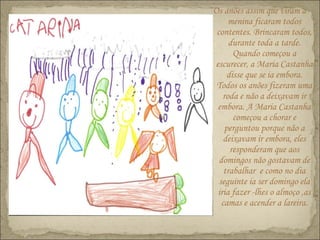 CATARINA
"Os anões assim que viram a
menina ficaram todos
contentes. Brincaram todos,
durante toda a tarde.
Quando começou a
escurecer, a Maria Castanha
disse que se ia embora.
Todos os anões fizeram uma
roda e não a deixavam ir
embora. A Maria Castanha
começou a chorar e
perguntou porque não a
deixavam ir embora, eles
responderam que aos
domingos não gostavam de
trabalhar e como no dia
seguinte ia ser domingo ela
iria fazer -lhes o almoço ,as
camas e acender a lareira.